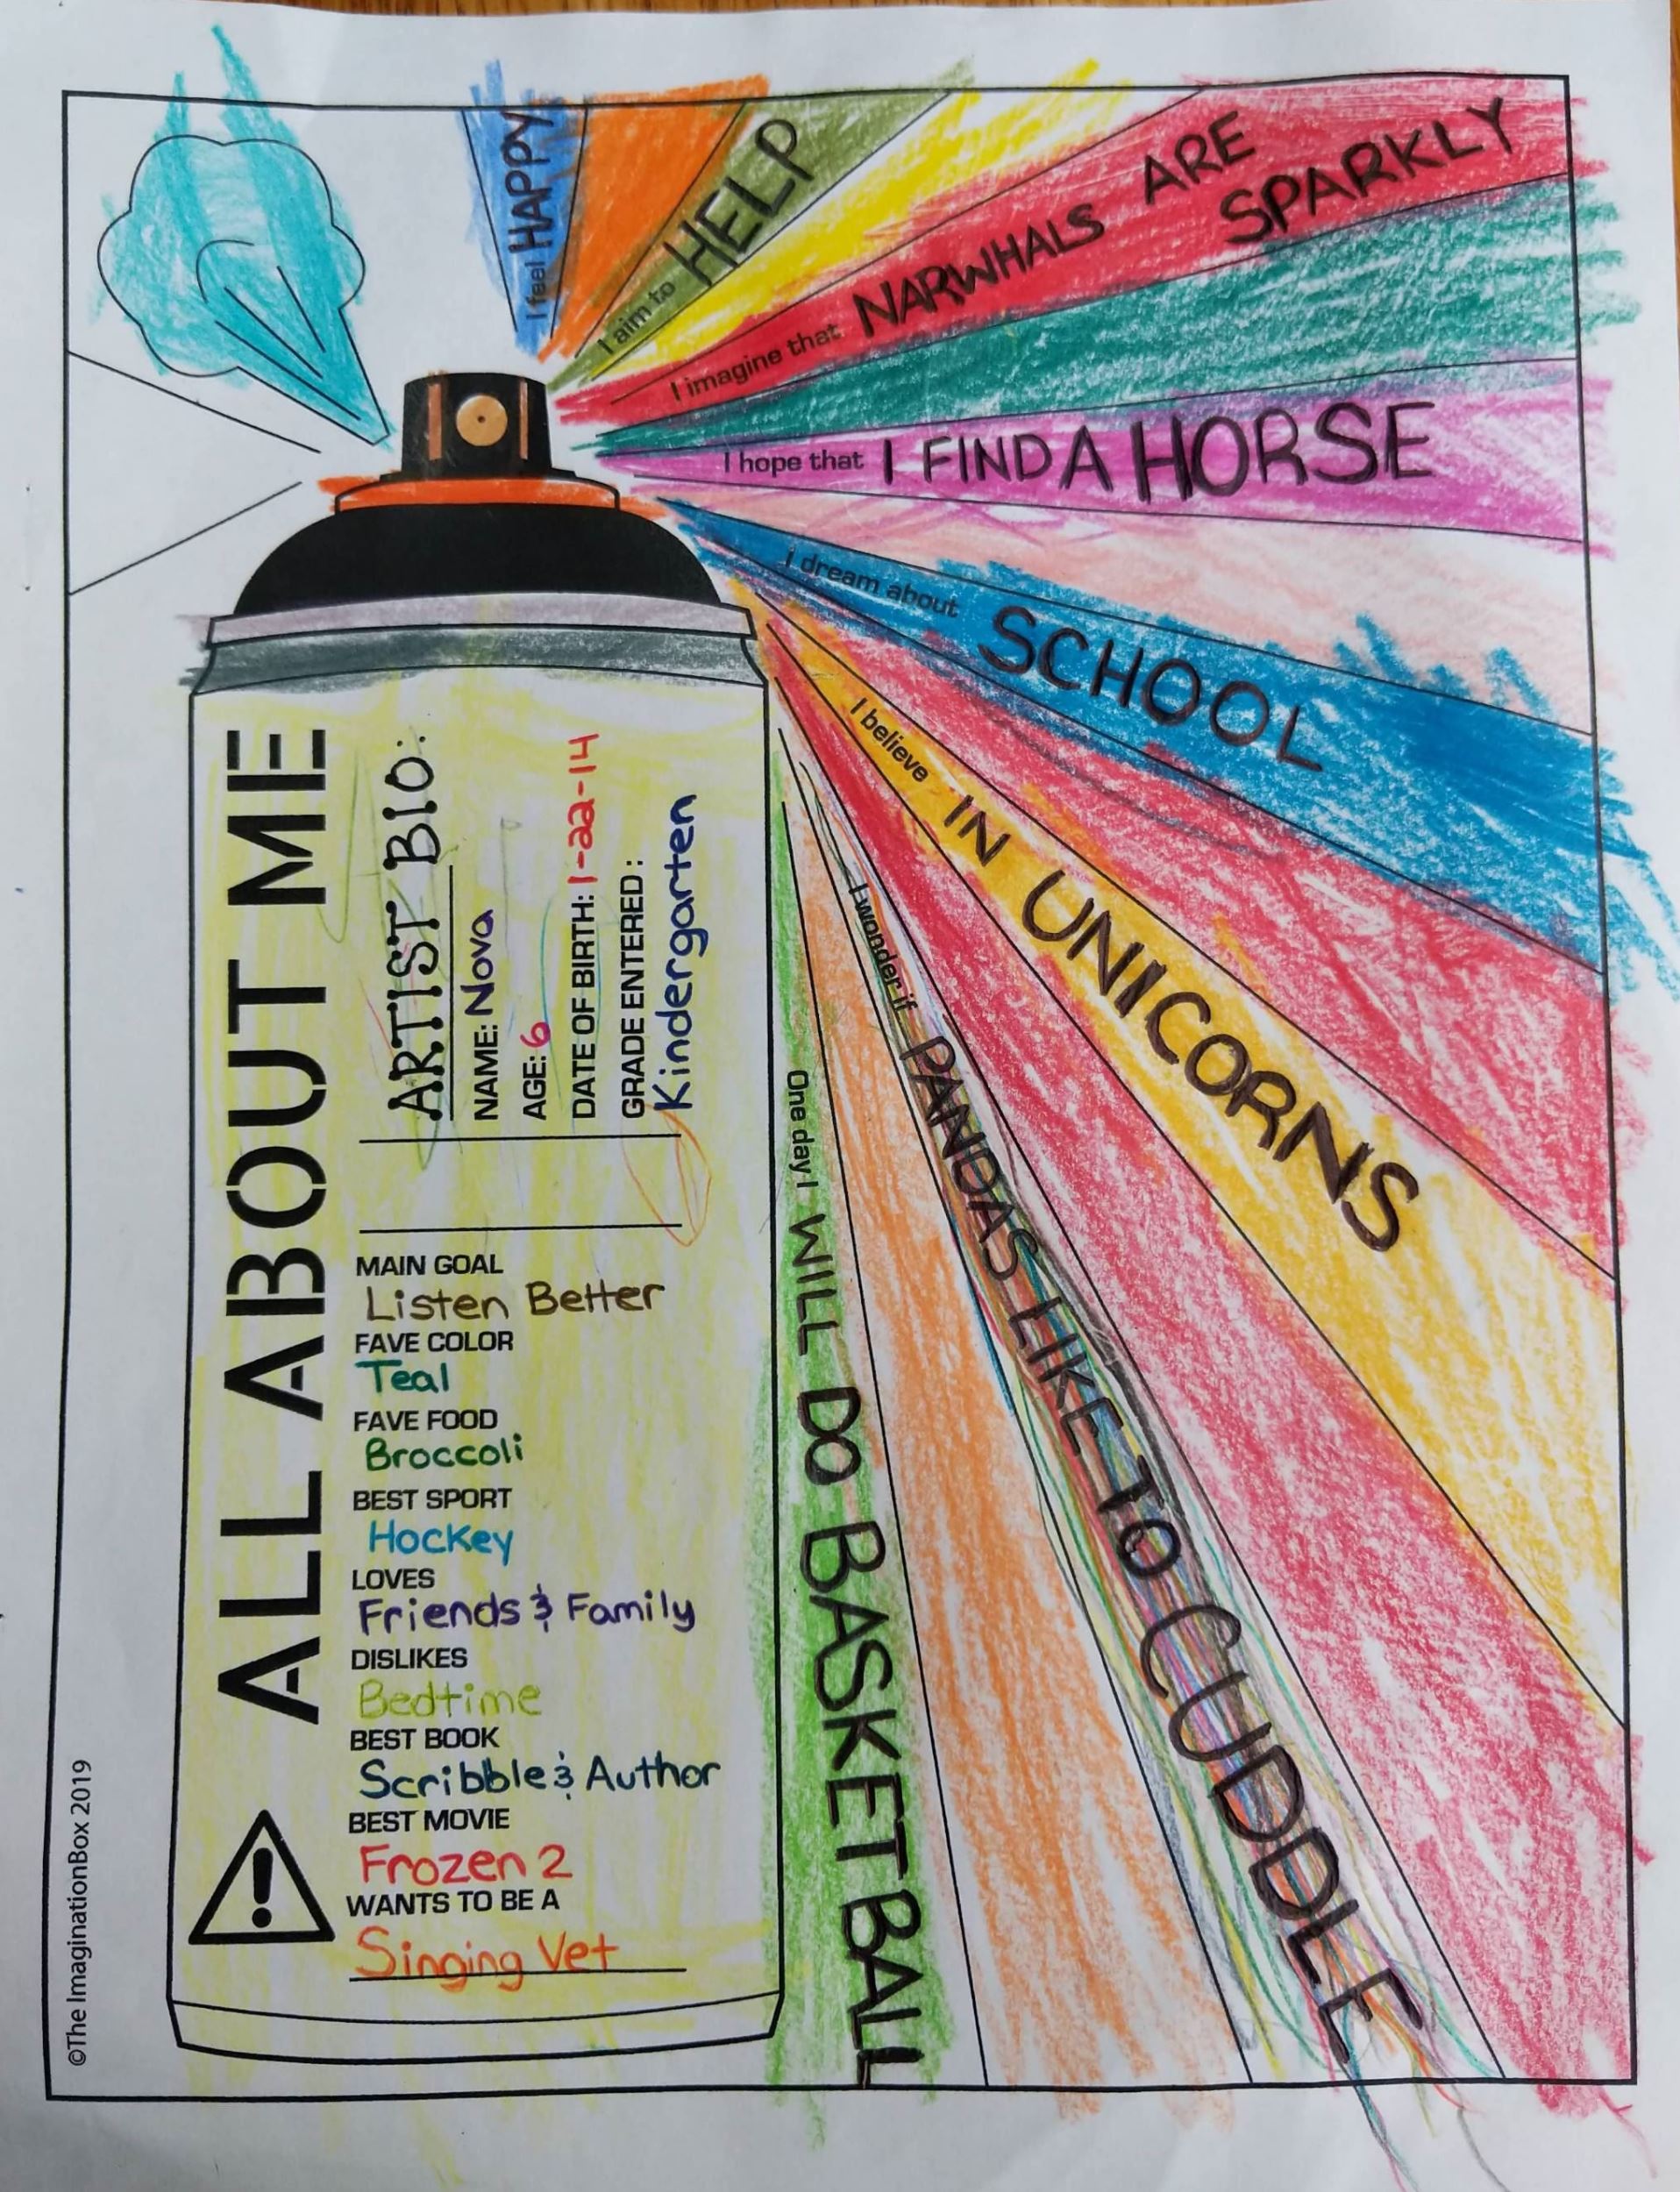 I feel HAPPY
I aim to HELP
I imagine that NARWHALS ARE
SPARKLY
I hope that I FIND A HORSE
I dream about SCHOOL
I believe IN UNICORNS
I wonder if PANDAS LIKE TO CUDDLE
One day I WILL DO BASKETBALL
ALL ABOUT ME
ARTIST BIO:
NAME: Nova
AGE: 6
DATE OF BIRTH: 1-22-14
GRADE ENTERED:
Kindergarten
MAIN GOAL
Listen Better
FAVE COLOR
Teal
FAVE FOOD
Broccoli
BEST SPORT
Hockey
LOVES
Friends & Family
DISLIKES
Bedtime
BEST BOOK
Scribble & Author
BEST MOVIE
Frozen 2
WANTS TO BE A
Singing Vet
©The ImaginationBox 2019